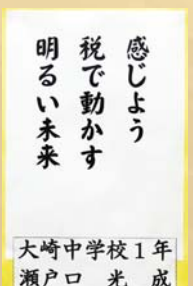 感じよう
税で動かす
明るい未来
大崎中学校1年
瀬戸口光成